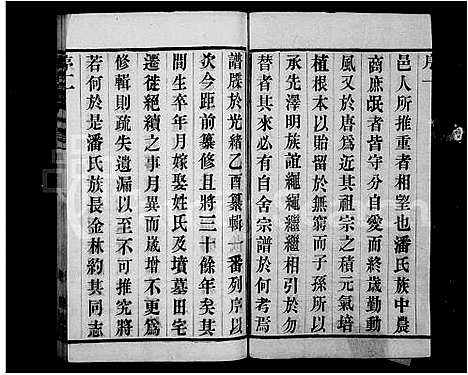 序一
邑人所推重者相望也潘氏族中農
商庶氓者皆守分自愛而終歲勤動
風又於唐爲近其祖宗之積元氣培
植根本以貽留於無窮而子孫所以
承先澤明族誼繩繩繼繼相引於勿
替者其來必有自舍宗譜於何考焉
譜牒於光緒乙酉纂輯一番列序以
次今距前纂修且將三十餘年矣其
間生卒年月嫁娶姓氏及墳墓田宅
遷徙絕續之事月異而歲增不更爲
修輯則疏失遺漏以至不可推究將
若何於是潘氏族長金林約其同志
序二